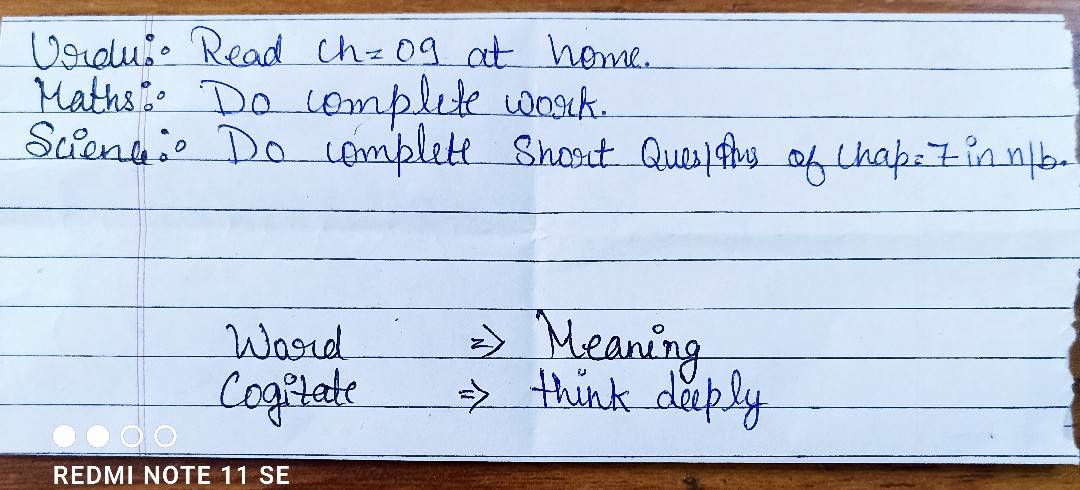 Urdu:- Read Ch=09 at home.
Maths:- Do complete work.
Science:- Do complete Short Ques/Ans of Chap=7 in n/b.
Word => Meaning
Cogitate => think deeply
REDMI NOTE 11 SE